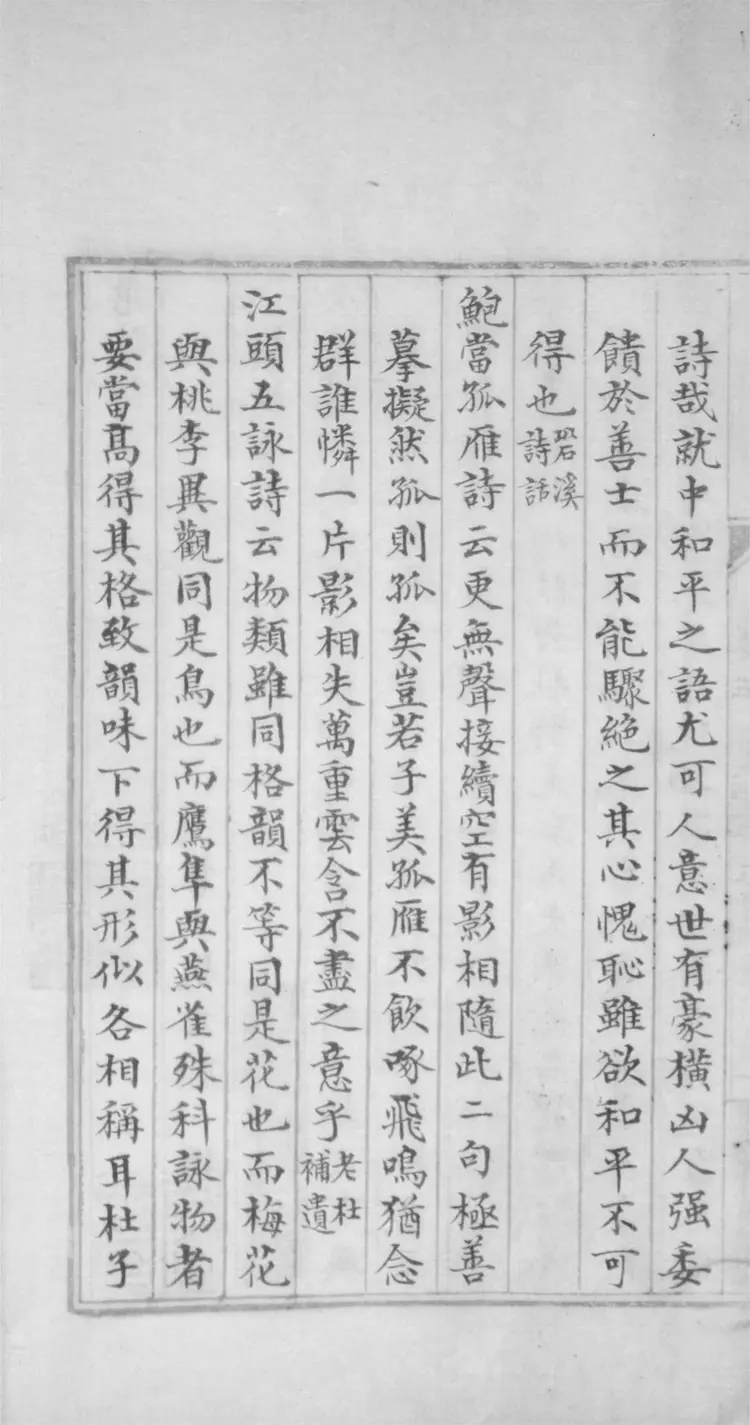 詩哉就中和平之語尤可人意世有豪橫凶人强委
饋於善士而不能驟絕之其心愧恥雖欲和平不可
得也䂬溪詩話
鮑當孤雁詩云更無聲接續空有影相隨此二句極善
摹擬然孤則孤矣豈若子美孤雁不飲啄飛鳴猶念
群誰憐一片影相失萬重雲含不盡之意乎老杜補遺
江頭五詠詩云物類雖同格韻不等同是花也而梅花
與桃李異觀同是鳥也而鷹隼與燕雀殊科詠物者
要當高得其格致韻味下得其形似各相稱耳杜子